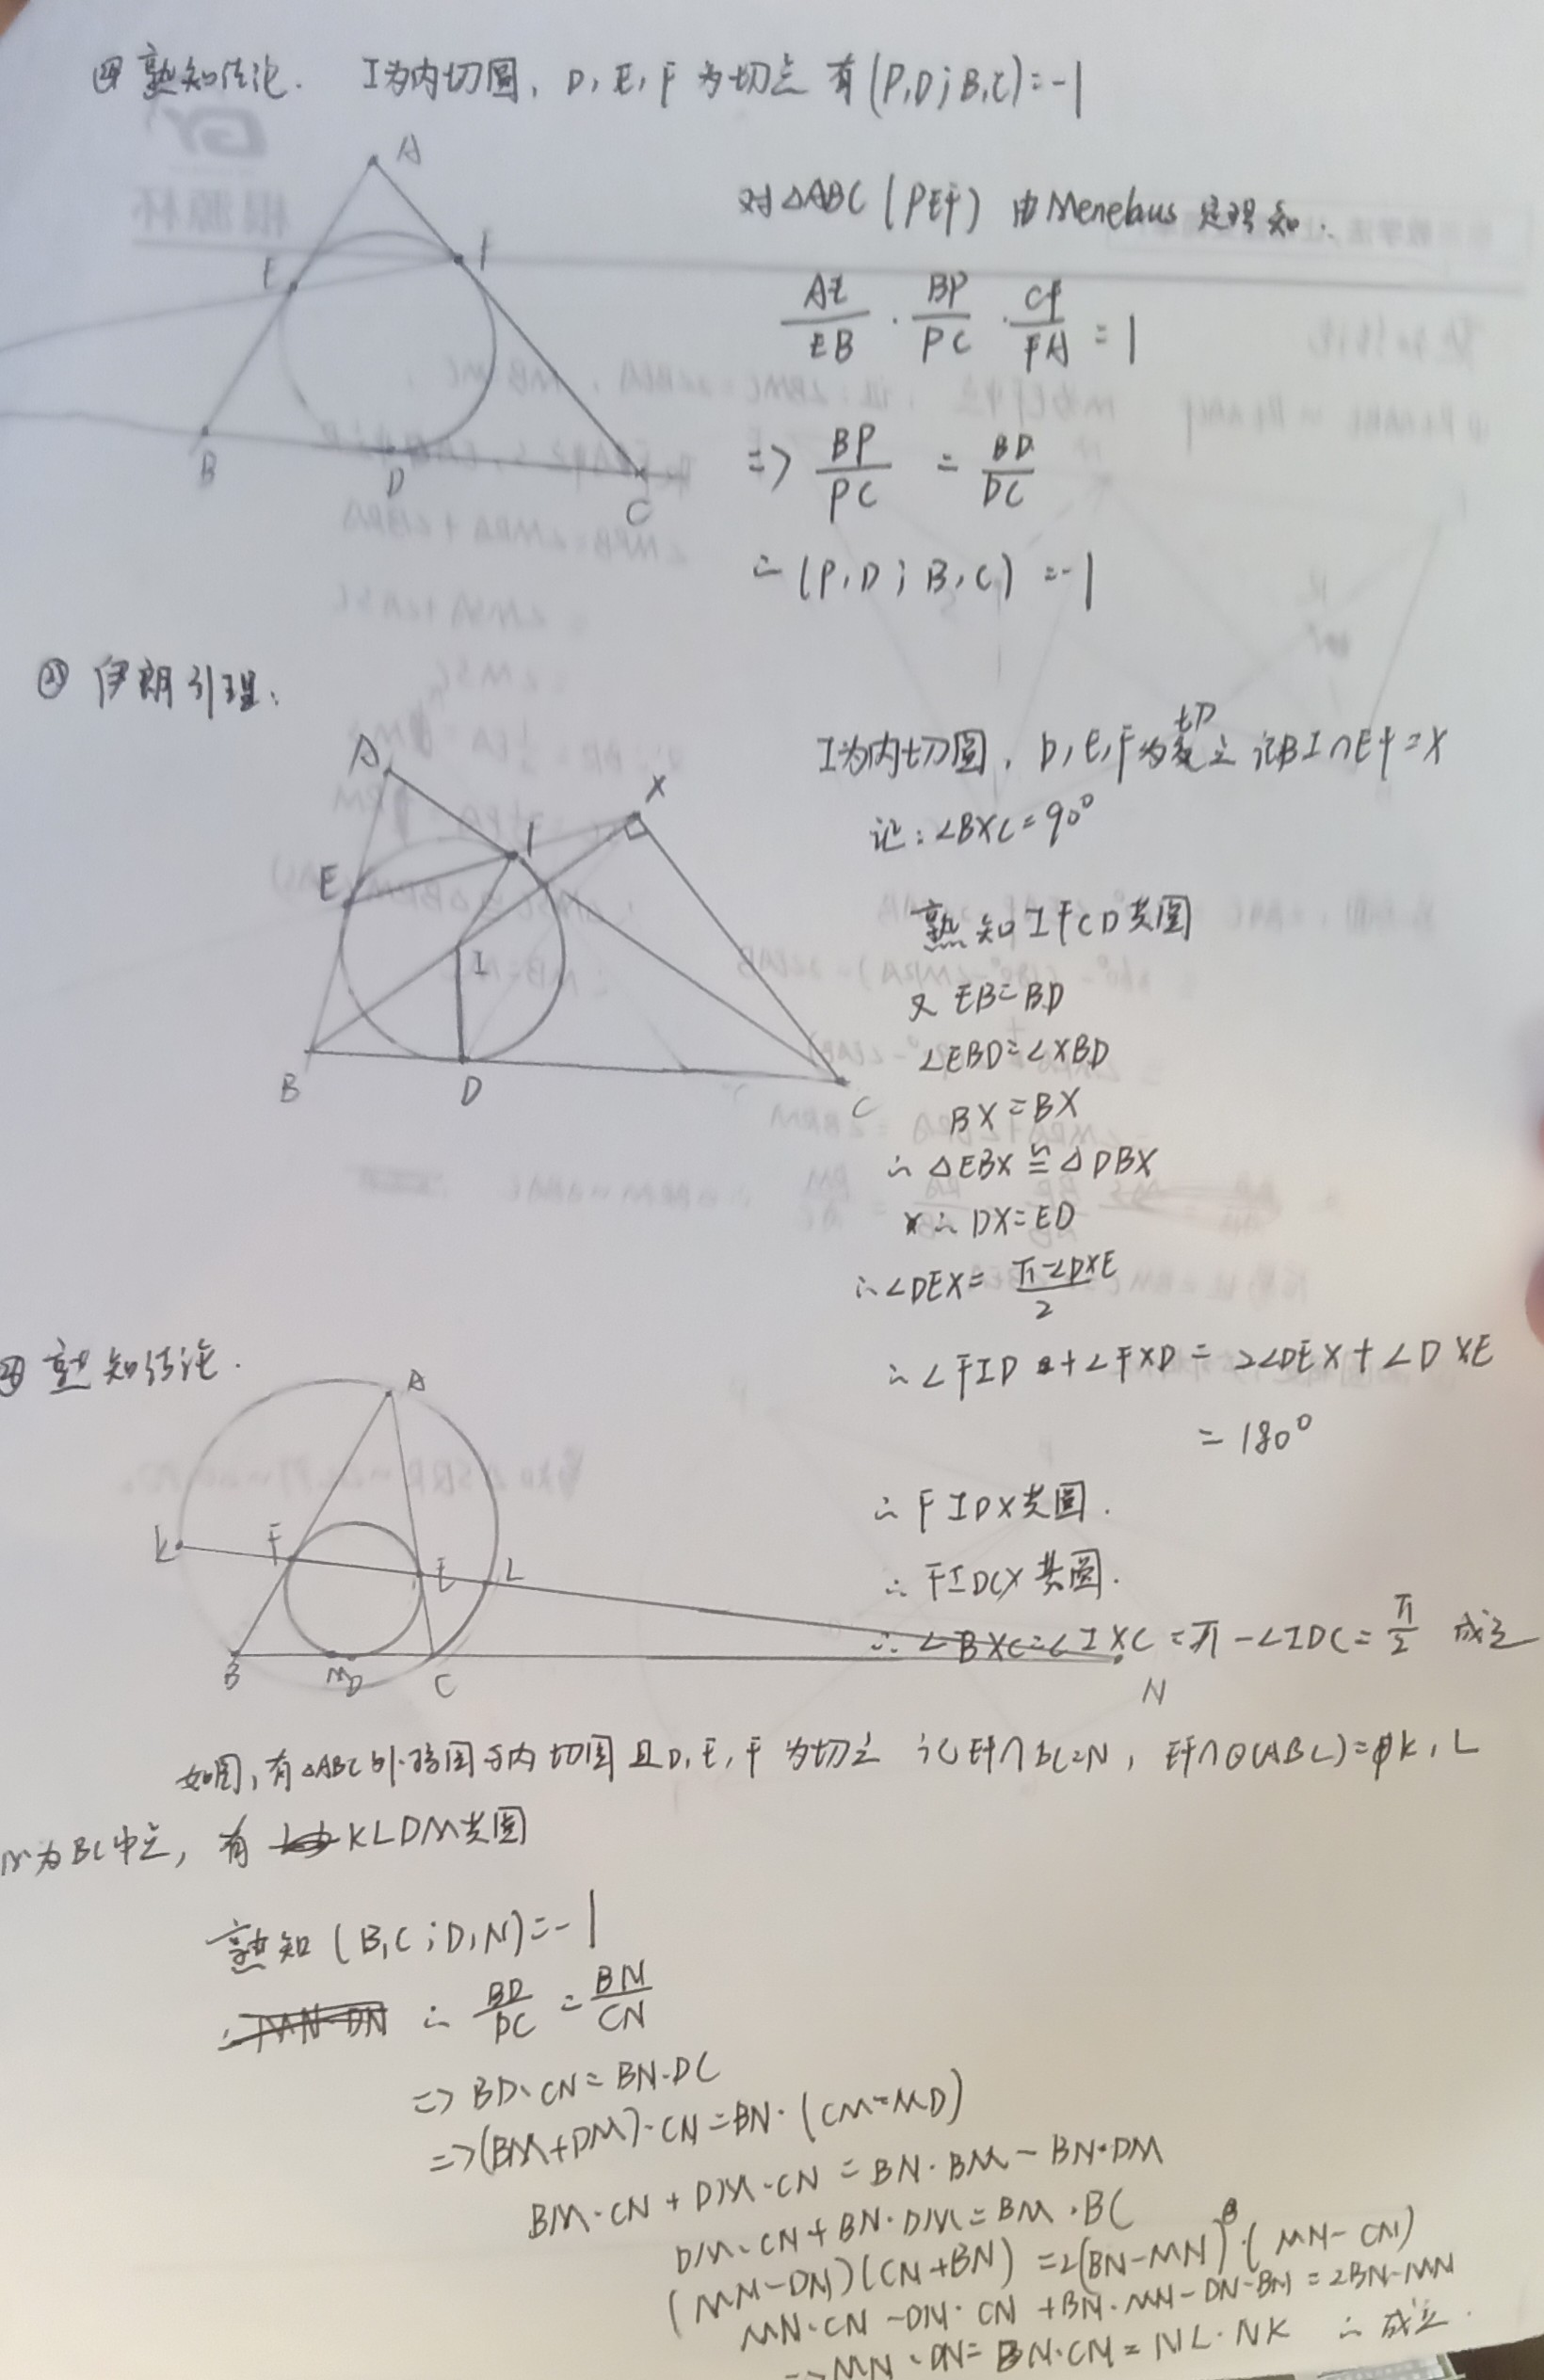 熟知结论. I为内切圆, D, E, F 为切点 有 (P,D;B,C)=-1
A
E
F
B
D
C
对△ABC (PEF) 由Menelaus 定理知.
AE/EB · BP/PC · CF/FA = 1
=> BP/PC = BD/DC
∴ (P,D;B,C) =-1
伊朗引理:
A
X
E
F
I
B
D
C
I为内切圆, D, E, F为切点 记BI∩EF=X
证: ∠BXC=90°
熟知IFCD共圆
又 EB=BD
∠EBD=∠XBD
BX=BX
∴ △EBX≌△DBX
∴ DX=ED
∴∠DEX= π-∠DXE/2
∴∠FID+∠FXD= 2∠DEX+∠DXE
= 180°
∴ FIDX共圆.
∴ FIDCX共圆.
∴ ∠BXC=∠IXC=π-∠IDC=π/2 成立
熟知结论.
A
K
F
E
L
B
M
D
C
N
如图, 有△ABC外接圆与内切圆且D, E, F 为切点 记EF∩BC=N, EF∩⊙(ABC)=K, L
M为BC中点, 有 KLDM共圆
熟知 (B,C;D,N)=-1
∴ BD/DC = BN/CN
=> BD·CN=BN·DC
=>(BM+DM)·CN=BN·(CM-MD)
BM·CN + DM·CN = BN·BM - BN·DM
DM·CN+BN·DM=BM·BC
(MN-DN)(CN+BN) =2(BN-MN)·(MN-CN)
MN·CN-DN·CN+BN·MN-DN·BN=2BN·MN
=>MN·DN=BN·CN=NL·NK ∴ 成立.